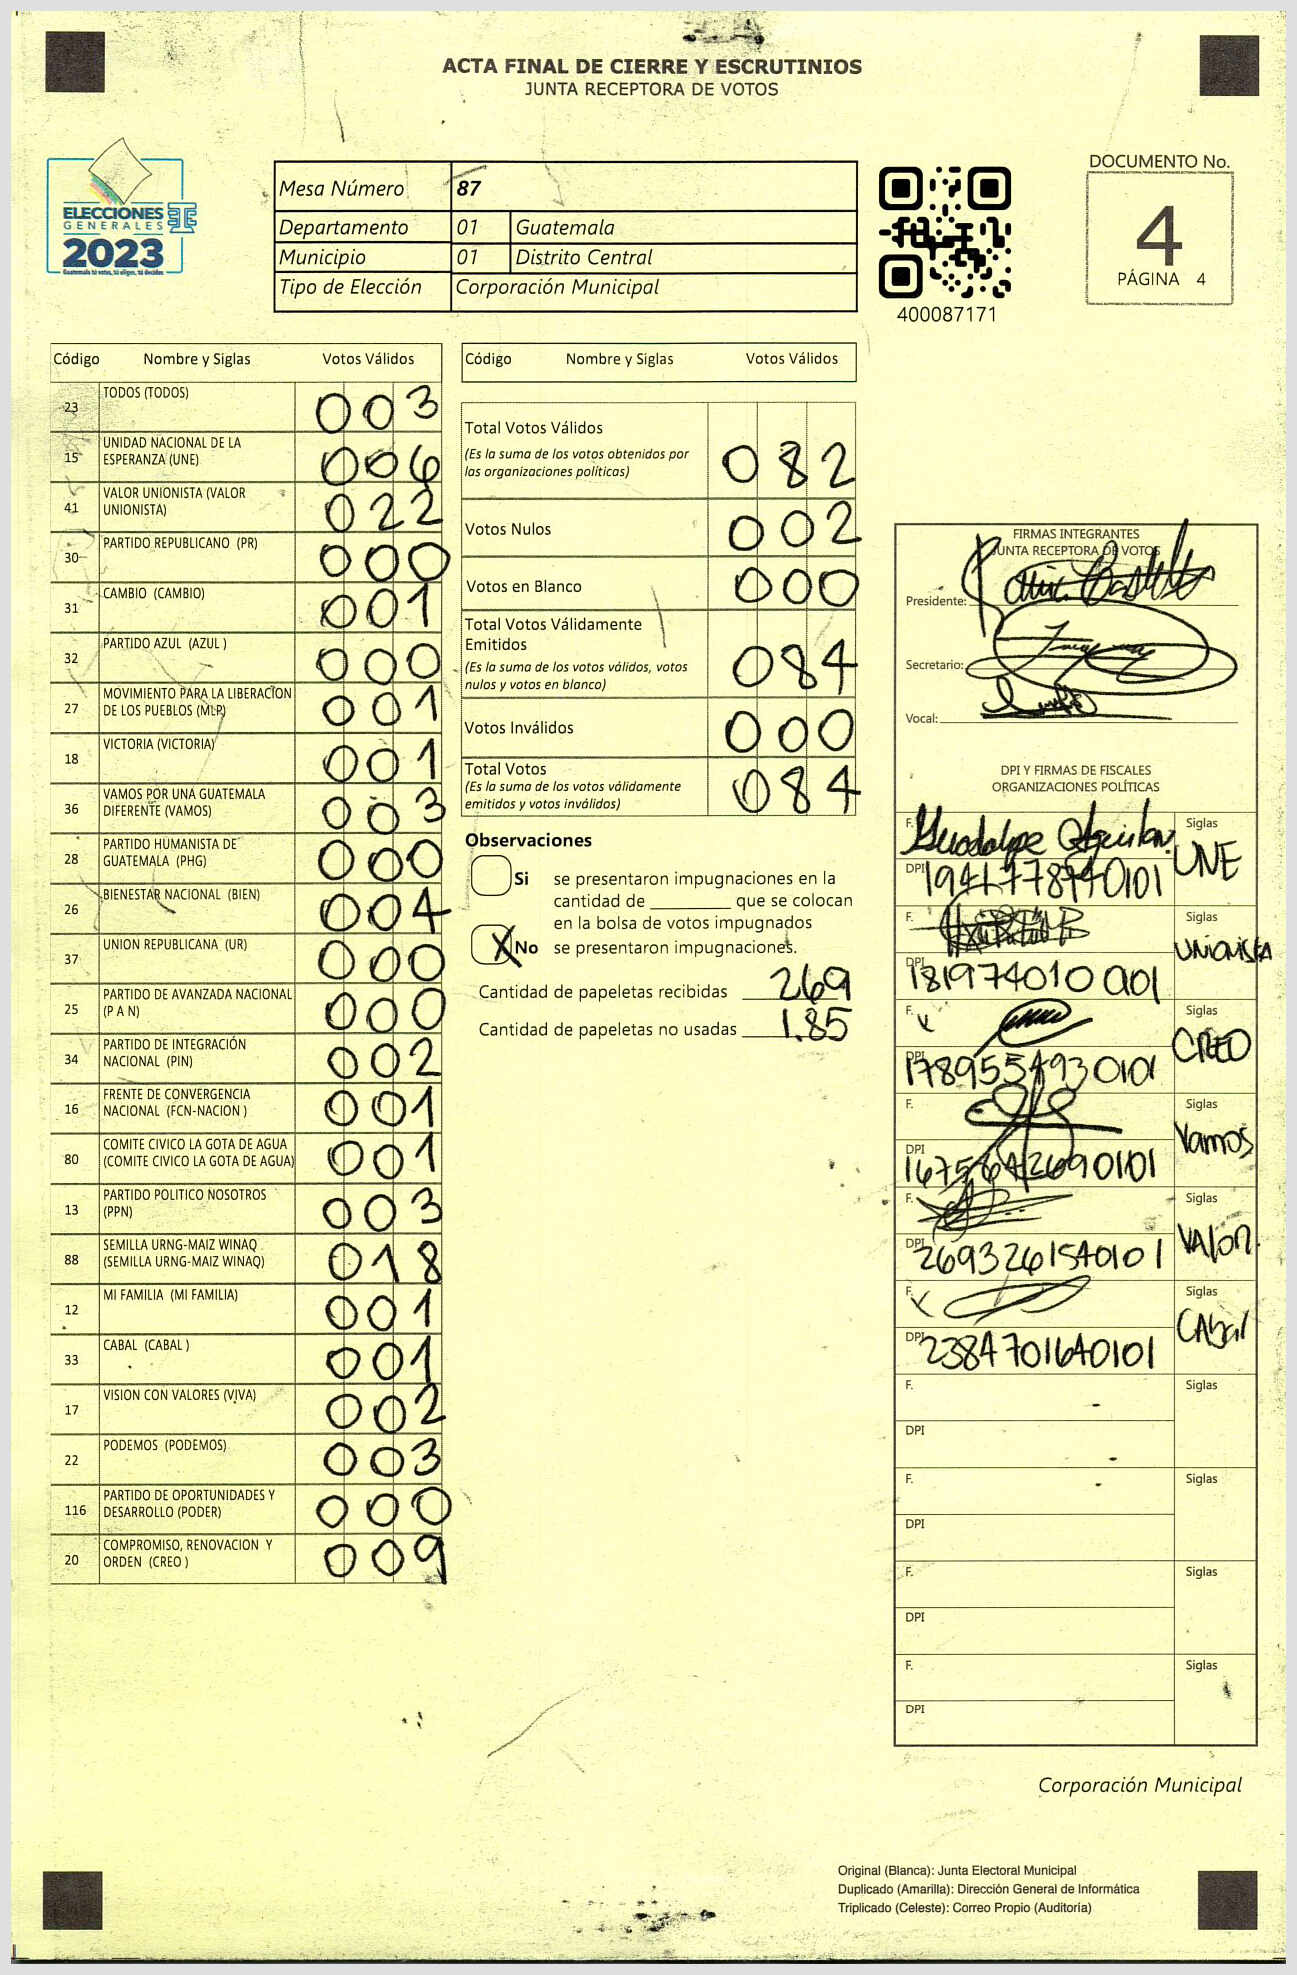 ACTA FINAL DE CIERRE Y ESCRUTINIOS
JUNTA RECEPTORA DE VOTOS
ELECCIONES
GENERALES
2023
Guatemala tú votas, tú eliges, tú decides
Mesa Número 87
Departamento 01 Guatemala
Municipio 01 Distrito Central
Tipo de Elección Corporación Municipal
400087171
DOCUMENTO No.
4
PÁGINA 4
Código Nombre y Siglas Votos Válidos
23 TODOS (TODOS) 003
15 UNIDAD NACIONAL DE LA
ESPERANZA (UNE) 006
41 VALOR UNIONISTA (VALOR
UNIONISTA) 022
30 PARTIDO REPUBLICANO (PR) 000
31 CAMBIO (CAMBIO) 001
32 PARTIDO AZUL (AZUL ) 000
27 MOVIMIENTO PARA LA LIBERACION
DE LOS PUEBLOS (MLP) 001
18 VICTORIA (VICTORIA) 001
36 VAMOS POR UNA GUATEMALA
DIFERENTE (VAMOS) 003
28 PARTIDO HUMANISTA DE
GUATEMALA (PHG) 000
26 BIENESTAR NACIONAL (BIEN) 004
37 UNION REPUBLICANA (UR) 000
25 PARTIDO DE AVANZADA NACIONAL
(P A N) 000
34 PARTIDO DE INTEGRACIÓN
NACIONAL (PIN) 002
16 FRENTE DE CONVERGENCIA
NACIONAL (FCN-NACION ) 001
80 COMITE CIVICO LA GOTA DE AGUA
(COMITE CIVICO LA GOTA DE AGUA) 001
13 PARTIDO POLITICO NOSOTROS
(PPN) 003
88 SEMILLA URNG-MAIZ WINAQ
(SEMILLA URNG-MAIZ WINAQ) 018
12 MI FAMILIA (MI FAMILIA) 001
33 CABAL (CABAL ) 001
17 VISION CON VALORES (VIVA) 002
22 PODEMOS (PODEMOS) 003
116 PARTIDO DE OPORTUNIDADES Y
DESARROLLO (PODER) 000
20 COMPROMISO, RENOVACION Y
ORDEN (CREO ) 009
Código Nombre y Siglas Votos Válidos
Total Votos Válidos
(Es la suma de los votos obtenidos por
las organizaciones políticas) 082
Votos Nulos 002
Votos en Blanco 000
Total Votos Válidamente
Emitidos
(Es la suma de los votos válidos, votos
nulos y votos en blanco) 084
Votos Inválidos 000
Total Votos
(Es la suma de los votos válidamente
emitidos y votos inválidos) 084
Observaciones
Si se presentaron impugnaciones en la
cantidad de ________ que se colocan
en la bolsa de votos impugnados
X No se presentaron impugnaciones.
Cantidad de papeletas recibidas 269
Cantidad de papeletas no usadas 1.85
FIRMAS INTEGRANTES
JUNTA RECEPTORA DE VOTOS
Presidente:
Secretario:
Vocal:
DPI Y FIRMAS DE FISCALES
ORGANIZACIONES POLÍTICAS
F. Guadalupe Siglas
UNE
DPI
F. Siglas
UNIONISTA
DPI
F. Siglas
CREO
DPI 1789554930101
F. Siglas
Vamos
DPI
F. Siglas
VALOR.
DPI 2693261540101
F. Siglas
CABAL
DPI 2384701640101
F. Siglas
DPI
F. Siglas
DPI
F. Siglas
DPI
F. Siglas
DPI
Corporación Municipal
Original (Blanca): Junta Electoral Municipal
Duplicado (Amarilla): Dirección General de Informática
Triplicado (Celeste): Correo Propio (Auditoría)